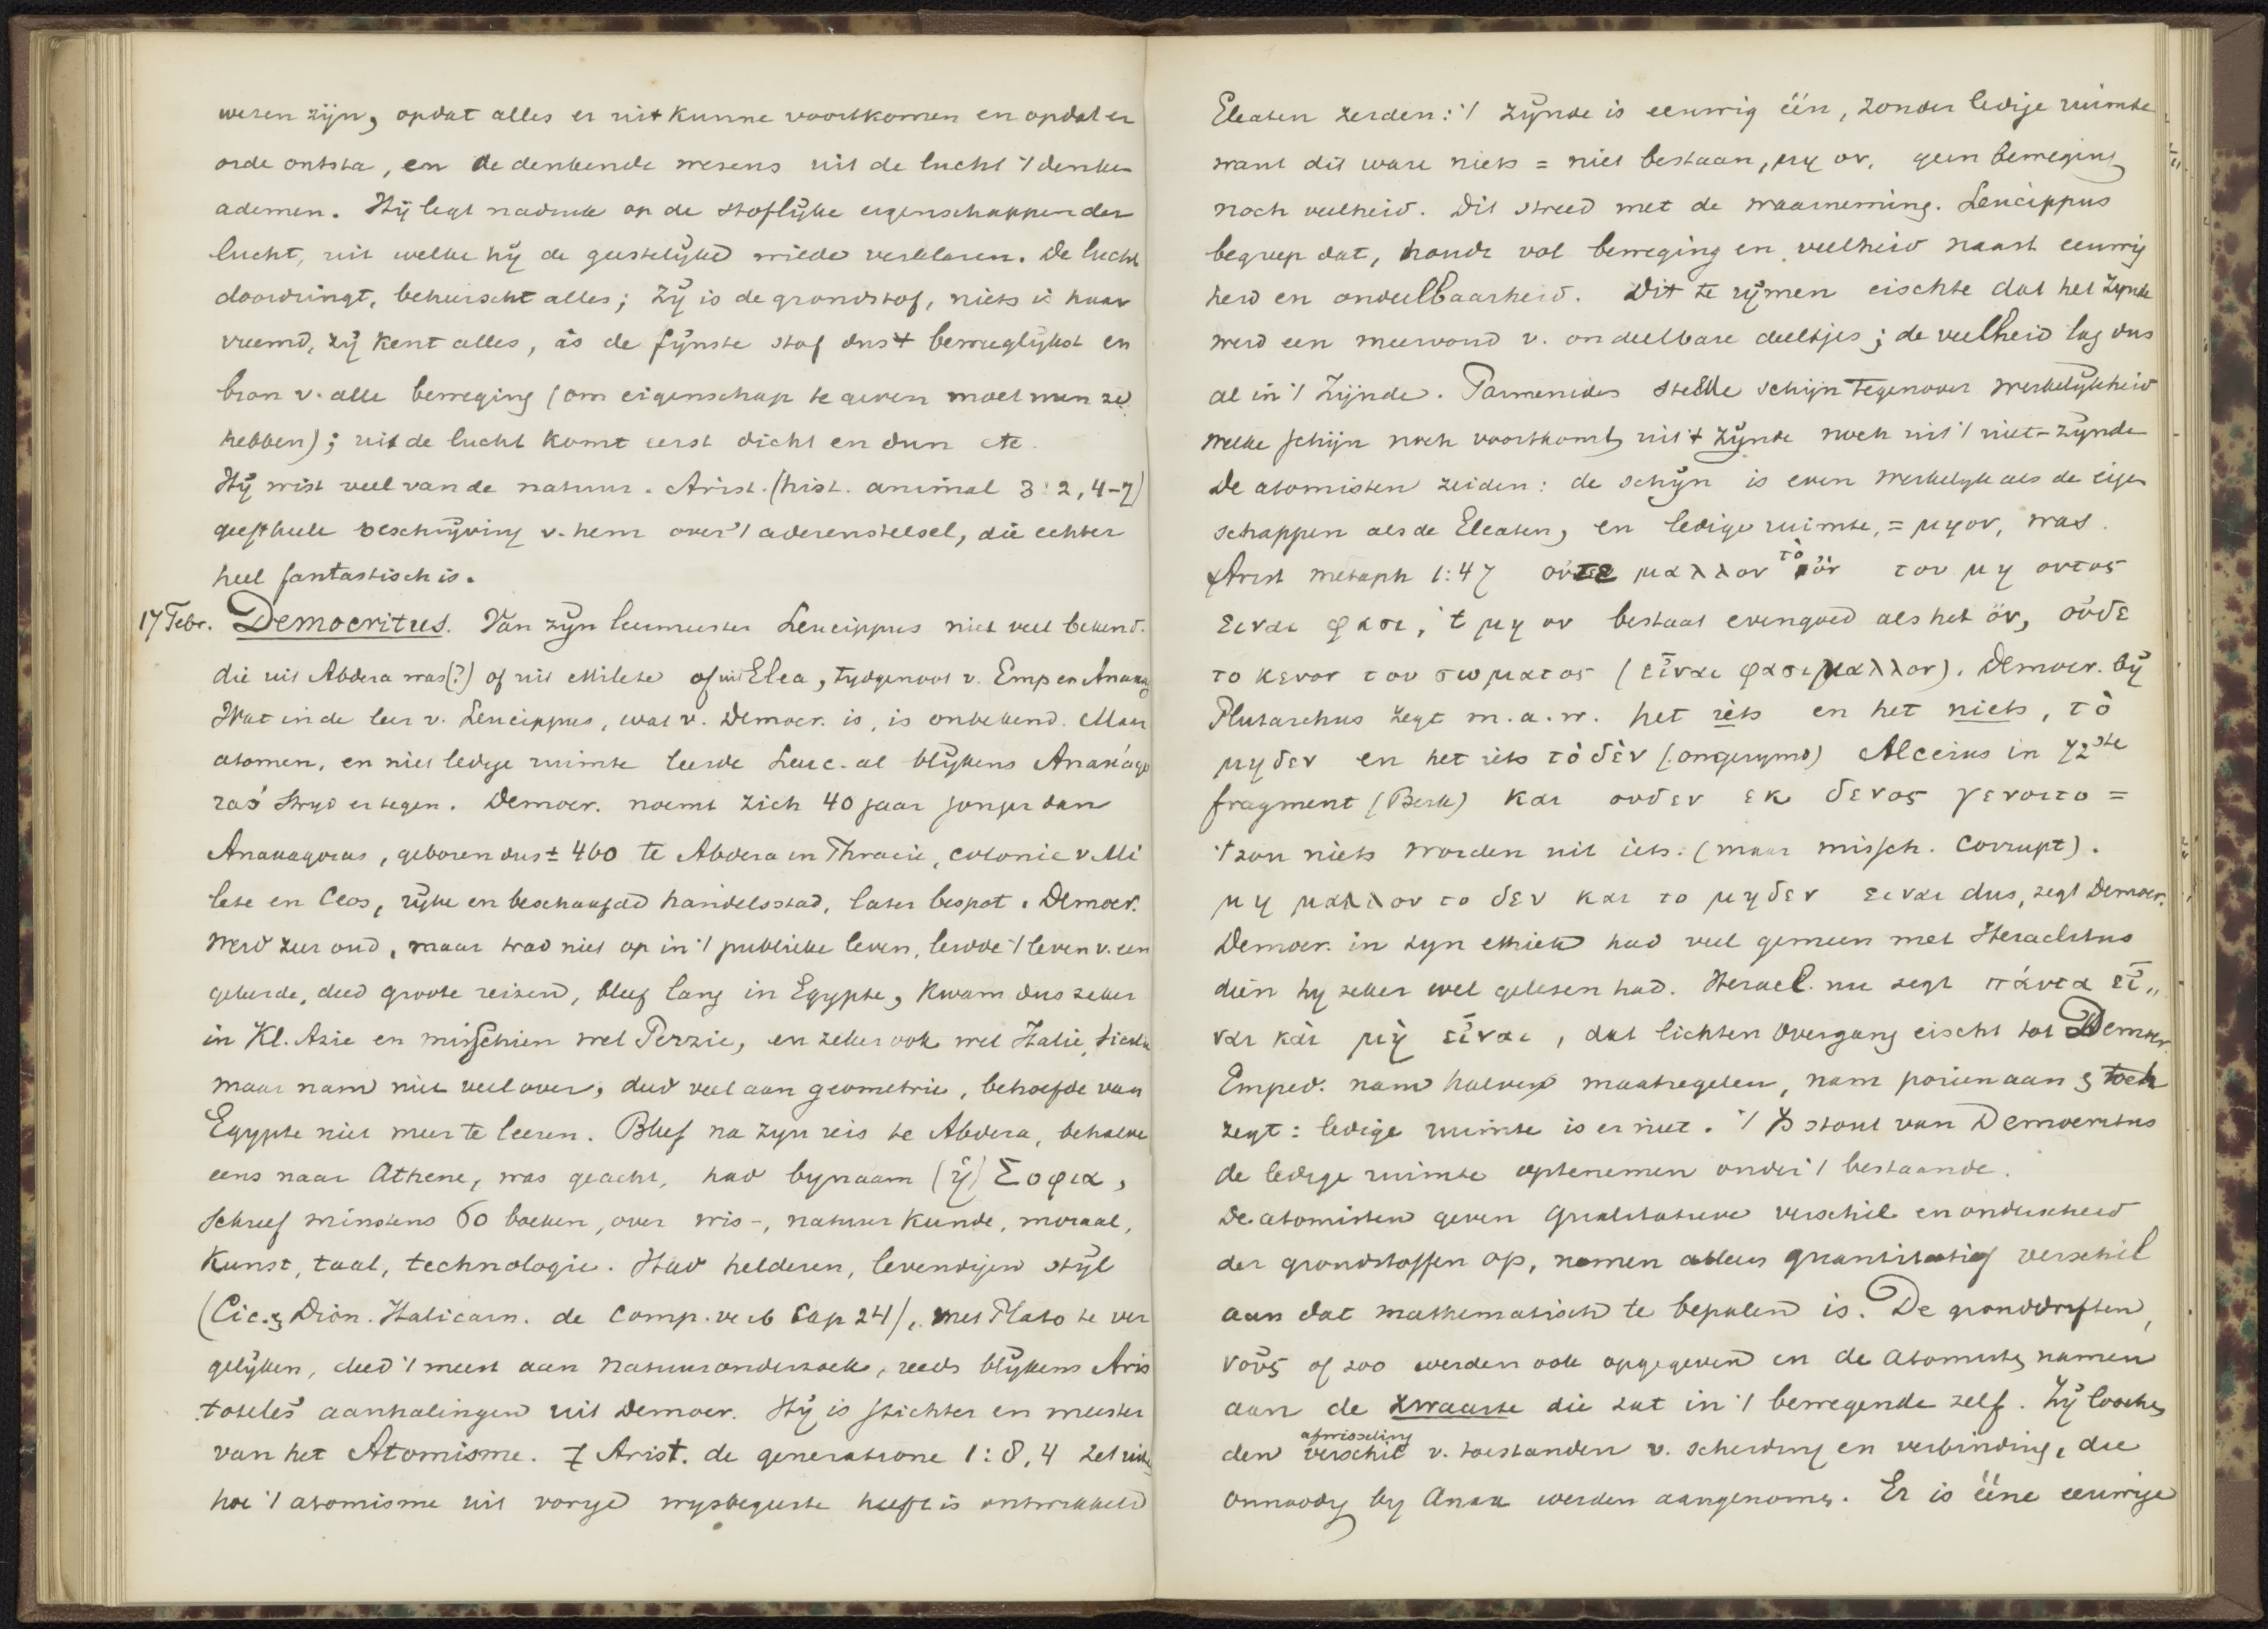 wezen zijn, opdat alles er uit kunne voortkomen en opdat er
orde ontsta, en de denkende wezens uit de lucht 't denken
ademen. Hij legt nadruk op de stoflijke eigenschappen der
lucht, uit welke hij de geestelijke wilde verklaren. De lucht
doordringt, beheerscht alles; zij is de grondstof, niets is haar
vreemd, zij kent alles, is de fijnste stof dus 't beweeglijkst en
bron v. alle beweging (om eigenschap te geven moet men ze
hebben); uit de lucht komt eerst dicht en dun etc.
Hij wist veel van de natuur. Arist. (hist. animal 3:2, 4-7)
geeft heele beschrijving v. hem over 't aderenstelsel, die echter
heel fantastisch is.
17 Febr. Democritus. Van zijn leermeester Leucippus niet veel bekend.
die uit Abdera was(?) of uit Milete of uit Elea, tydgenoot v. Emp en Anaxag
Wat in de leer v. Leucippus, wat v. Democr. is, is onbekend. Maar
atomen, en niet ledige ruimte leerde Leuc. al blijkens Anaxágo
ras' stryd ertegen. Democr. noemt zich 40 jaar jonger dan
Anaxagoras, geboren dus ± 460 te Abdera in Thracie, colonie v Mi
lete en Ceos, rijke en beschaafde handelsstad, later bespot. Democr.
werd zeer oud, maar trad niet op in 't publieke leven, leidde 't leven v. een
geleerde, deed groote reizen, bleef lang in Egypte, kwam dus zeker
in Kl. Azie en misschien wel Perzie, en zeker ook wel Italie, Sicilie
maar nam niet veel over, deed veel aan geometrie, behoefde van
Egypte niet meer te leeren. Bleef na zijn reis te Abdera, behalve
eens naar Athene, was geacht, had bynaam (ἡ) Σοφια,
Schreef minstens 60 boeken, over wis-, natuurkunde, moraal,
Kunst, taal, technologie. Had helderen, levendigen stijl
(Cic. & Dion. Halicarn. de comp. verb Cap 24), met Plato te ver
gelijken, deed 't meest aan natuuronderzoek, reeds blijkens Aris
toteles' aanhalingen uit Democr. Hij is stichter en meester
van het Atomisme. Arist. de generatione 1:8, 4 zet uit
hoe 't atomisme uit vorige wysbegeerte heeft is ontwikkeld
Eleaten zeiden: 't Zijnde is eeuwig één, zonder ledige ruimte
want dit ware niets = niet bestaan, μη ον, geen beweging
noch veelheid. Dit streed met de waarneming. Leucippus
begreep dat, houdt vol beweging en veelheid naast eeuwig
heid en ondeelbaarheid. Dit te rijmen eischte dat het Zynde
werd een meervoud v. ondeelbare deeltjes; de veelheid lag dus
al in 't Zijnde. Parmenides stelde schijn tegenover werkelijkheid
welke schijn noch voortkomt uit 't zijnde noch uit 't niet-zijnde
De atomisten zeiden: de schijn is even werkelijk als de eigen
schappen als de Eleaten, en ledige ruimte, = μη ον, was.
Arist metaph 1:4 ουτε μαλλον τὸ ὂν του μη οντος
ειναι φασι, 't μη ον bestaat evengoed als het ὄν, οὐδε
το κενον του σωματος (εἶναι φασι μαλλον). Democr. bij
Plutarchus zegt m.a.w. het iets en het niets, τὸ
μηδεν en het iets τὸ δὲν (ongerymd) Alceius in 72ste
fragment (Berk) και ουδεν εκ δενος γενοιτο =
't zou niets worden uit iets. (maar missch. corrupt).
μη μαλλον το δεν και το μηδεν ειναι dus, zegt Democr.
Democr. in zyn ethiek had veel gemeen met Heraclitus
dien hy zeker wel gelezen had. Heracl. nu zegt πάντα εἶ„
ναι καὶ μὴ εἶναι, dat lichten overgang eischt tot Democr.
Emped. nam halven maatregelen, nam porien aan & toch
zegt: ledige ruimte is er niet. 't Is stout van Democritus
de ledige ruimte optenemen onder 't bestaande.
De atomisten geven qualitatieve verschil en onderscheid
der grondstoffen op, nemen alleen quantitatief verschil
aan dat mathematisch te bepalen is. De gronddriften,
νοῦς of zoo werden ook opgegeven en de atomisten namen
aan de zwaarte die zat in 't bewegende zelf. Zij looche,
den afwisseling verschil v. toestanden v. scheiding en verbinding, die
onnoodig by Anax werden aangenomen. Er is ééne eeuwige